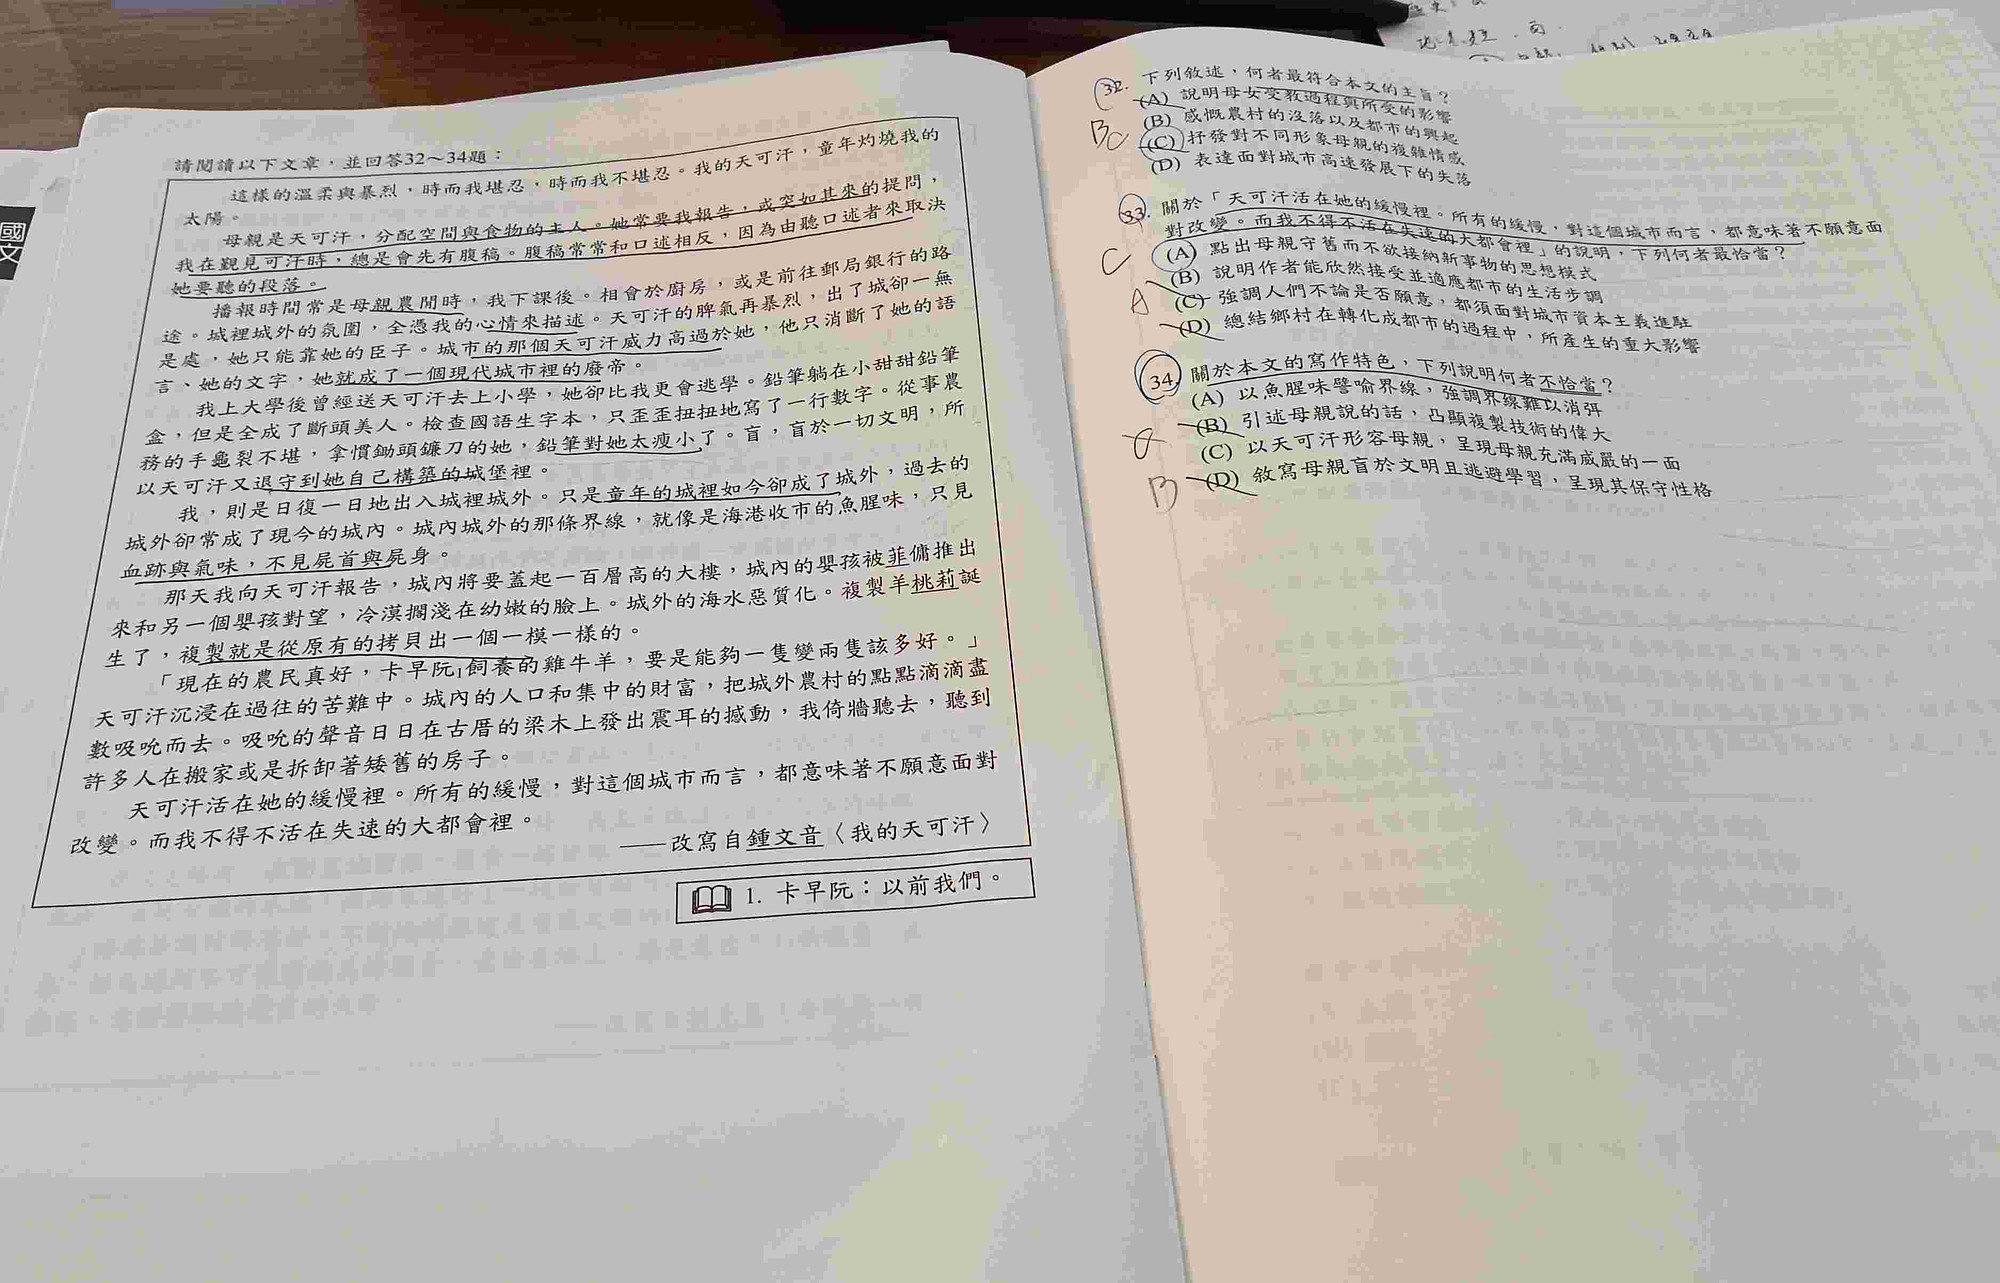 國文
請閱讀以下文章，並回答32～34題：
這樣的溫柔與暴烈，時而我堪忍，時而我不堪忍。我的天可汗，童年灼燒我的
太陽。
母親是天可汗，分配空間與食物的主人。她常要我報告，或突如其來的提問，
我在覲見可汗時，總是會先有腹稿。腹稿常常和口述相反，因為由聽口述者來取決
她要聽的段落。
播報時間常是母親農閒時，我下課後。相會於廚房，或是前往郵局銀行的路
途。城裡城外的氛圍，全憑我的心情來描述。天可汗的脾氣再暴烈，出了城卻一無
是處，她只能靠她的臣子。城市的那個天可汗威力高過於她，他只消斷了她的語
言、她的文字，她就成了一個現代城市裡的廢帝。
我上大學後曾經送天可汗去上小學，她卻比我更會逃學。鉛筆躺在小甜甜鉛筆
盒，但是全成了斷頭美人。檢查國語生字本，只歪歪扭扭地寫了一行數字。從事農
務的手龜裂不堪，拿慣鋤頭鐮刀的她，鉛筆對她太瘦小了。盲，盲於一切文明，所
以天可汗又退守到她自己構築的城堡裡。
我，則是日復一日地出入城裡城外。只是童年的城裡如今卻成了城外，過去的
城外卻常成了現今的城內。城內城外的那條界線，就像是海港收市的魚腥味，只見
血跡與氣味，不見屍首與屍身。
那天我向天可汗報告，城內將要蓋起一百層高的大樓，城內的嬰孩被菲傭推出
來和另一個嬰孩對望，冷漠擱淺在幼嫩的臉上。城外的海水惡質化。複製羊桃莉誕
生了，複製就是從原有的拷貝出一個一模一樣的。
「現在的農民真好，卡早阮1飼養的雞牛羊，要是能夠一隻變兩隻該多好。」
天可汗沉浸在過往的苦難中。城內的人口和集中的財富，把城外農村的點點滴滴盡
數吸吮而去。吸吮的聲音日日在古厝的梁木上發出震耳的撼動，我倚牆聽去，聽到
許多人在搬家或是拆卸著矮舊的房子。
天可汗活在她的緩慢裡。所有的緩慢，對這個城市而言，都意味著不願意面對
改變。而我不得不活在失速的大都會裡。
——改寫自鍾文音〈我的天可汗〉
1. 卡早阮：以前我們。
32. 下列敘述，何者最符合本文的主旨？
(A) 說明母女受教過程與所受的影響
(B) 感慨農村的沒落以及都市的興起
(C) 抒發對不同形象母親的複雜情感
(D) 表達面對城市高速發展下的失落
BC
33. 關於「天可汗活在她的緩慢裡。所有的緩慢，對這個城市而言，都意味著不願意面
對改變。而我不得不活在失速的大都會裡」的說明，下列何者最恰當？
(A) 點出母親守舊而不欲接納新事物的思想模式
(B) 說明作者能欣然接受並適應都市的生活步調
(C) 強調人們不論是否願意，都須面對城市資本主義進駐
(D) 總結鄉村在轉化成都市的過程中，所產生的重大影響
C
A
34. 關於本文的寫作特色，下列說明何者不恰當？
(A) 以魚腥味譬喻界線，強調界線難以消弭
(B) 引述母親說的話，凸顯複製技術的偉大
(C) 以天可汗形容母親，呈現母親充滿威嚴的一面
(D) 敘寫母親盲於文明且逃避學習，呈現其保守性格
B